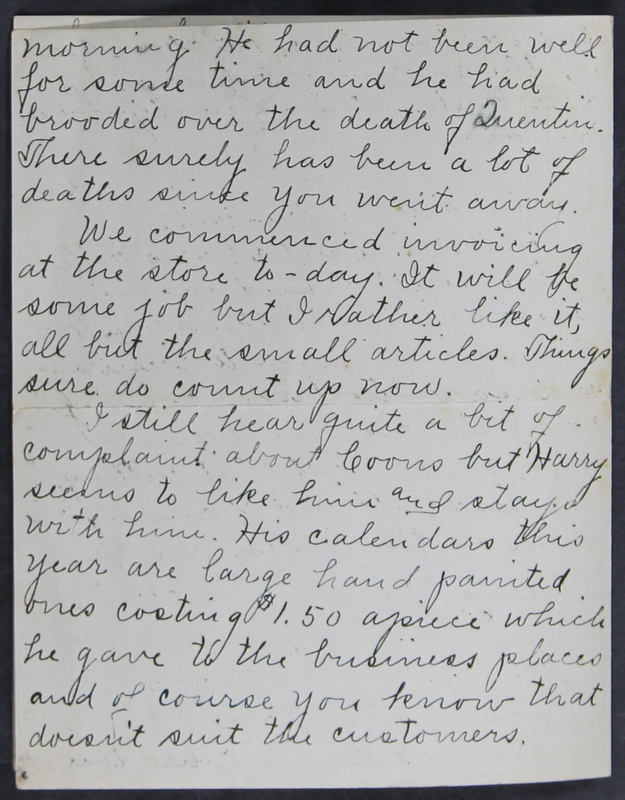 morning. He had not been well
for some time and he had
brooded over the death of Quentin.
There surely has been a lot of
deaths since you went away.
We commenced invoicing
at the store to-day. It will be
some job but I rather like it,
all but the small articles. Things
sure do count up now.
I still hear quite a bit of
complaint about Coons but Harry
seems to like him and stays
with him. His calendars this
year are large hand painted
ones costing $1.50 apiece which
he gave to the business places
and of course you know that
doesn't suit the customers.